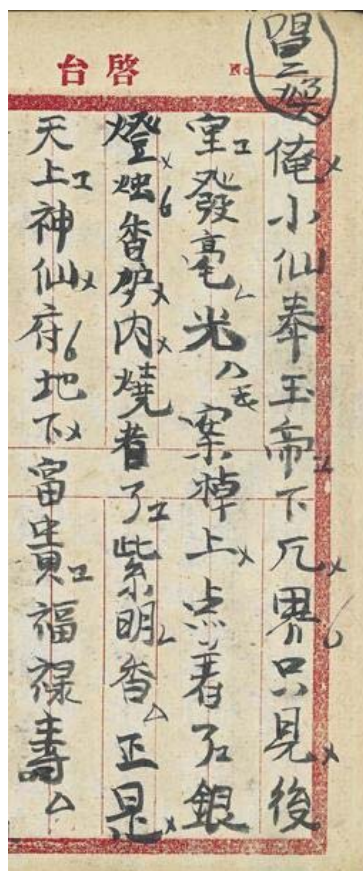 台啓
No.
唱二煥
俺小仙奉玉帝下凢界只見後
室發毫光案棹上点着了銀
燈烛香炉内燒着了紫明香正是
天上神仙府地下富貴福禄壽